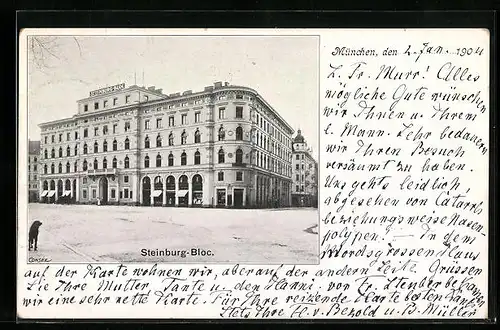 München, den 2. Jan. 1904
STEINBURG-BLOC
L. Fr. Murr! Alles
mögliche Gute wünschen
wir Ihnen u. Ihrem
l. Mann. Sehr bedauern
wir Ihren Besuch
versäumt zu haben.
Uns gehts leidlich,
abgesehen von Catarrh
beziehungsweise Nasen-
polypen! — In dem
Mordsgrossen Haus
Steinburg-Bloc.
auf der Karte wohnen wir, aber auf der andern Seite. Grüssen
Sie Ihre Mutter, Tante u. den Hanni. von Fr. bekamen
wir eine sehr nette Karte. Für Ihre reizende Karte besten Dank
Stets Ihre H. v. Bezold u. B. Müller